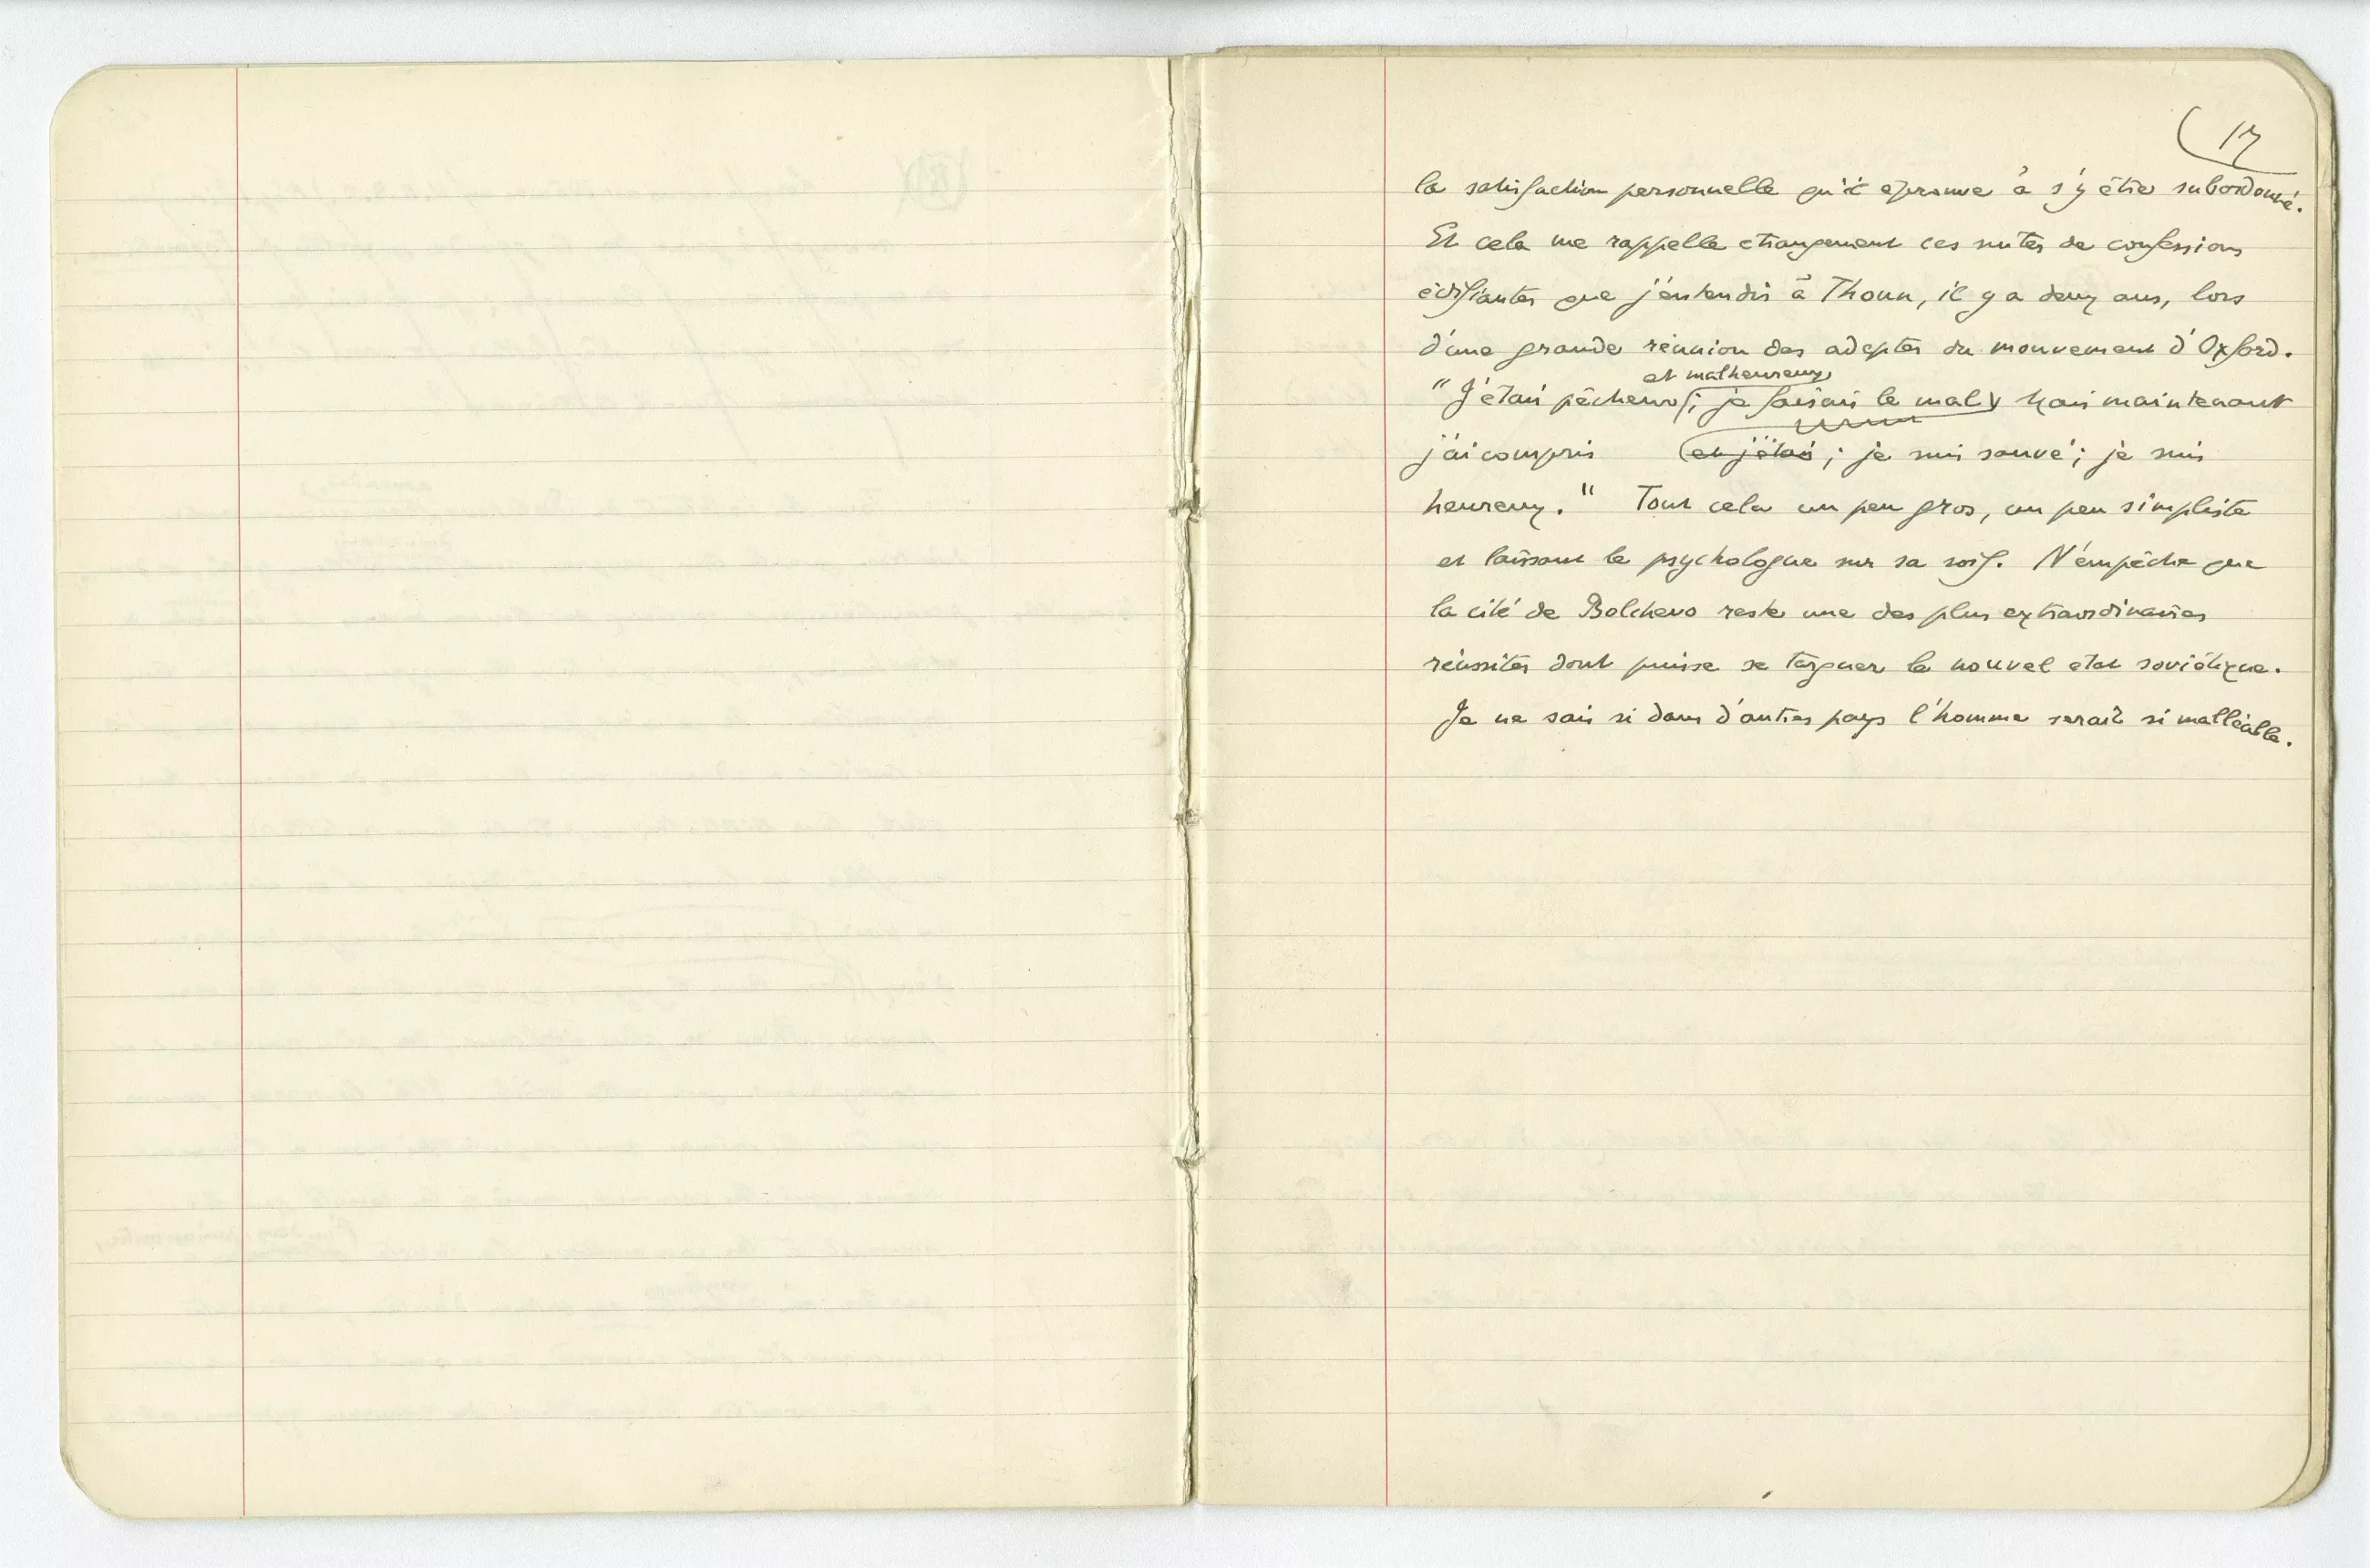 17
la satisfaction personnelle qu'il éprouve à s'y être subordonné.
Et cela me rappelle étrangement ces suites de confessions
édifiantes que j'entendis à Thoun, il y a deux ans, lors
d'une grande réunion des adeptes du mouvement d'Oxford.
et malheureux
"J'étais pêcheur; je faisais le mal; Mais maintenant
j'ai compris et j'étais; je suis sauvé; je suis
heureux." Tout cela un peu gros, un peu simpliste
et laissant le psychologue sur sa soif. N'empêche que
la cité de Bolchevo reste une des plus extraordinaires
réussites dont puisse se targuer le nouvel état soviétique.
Je ne sais si dans d'autres pays l'homme serait si malléable.